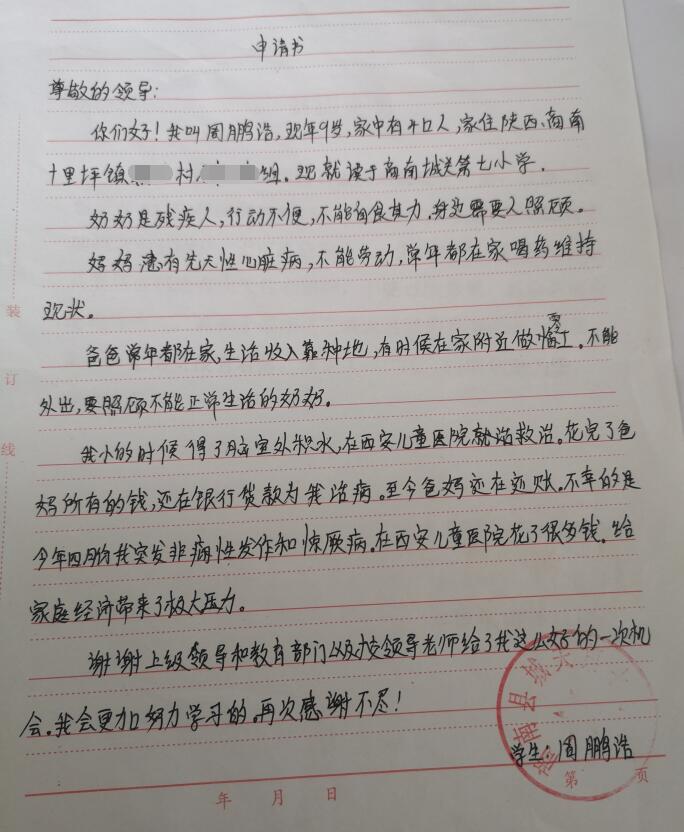 申请书
尊敬的领导:
你们好!我叫周鹏浩,现年9岁,家中有4口人,家住陕西.商南
十里坪镇 村 组。现就读于商南城关第七小学.
奶奶是残疾人,行动不便,不能自食其力.身边需要人照顾。
妈妈患有先天性心脏病,不能劳动,常年都在家喝药维持
现状。
爸爸常年都在家,生活收入靠种地,有时候在家附近做临零工.不能
外出,要照顾不能正常生活的奶奶。
我小的时候得了脑室外积水,在西安儿童医院就诊救治。花完了爸
妈所有的钱,还在银行贷款为我治病。至今爸妈还在还账。不幸的是
今年四月份我突发非痫性发作和惊厥病.在西安儿童医院花了很多钱.给
家庭经济带来了极大压力。
谢谢上级领导和教育部门以及校领导老师给了我这么好的一次机
会。我会更加努力学习的。再次感谢不尽!
学生:周鹏浩
年 月 日
第 页
装
订
线
商南县城关